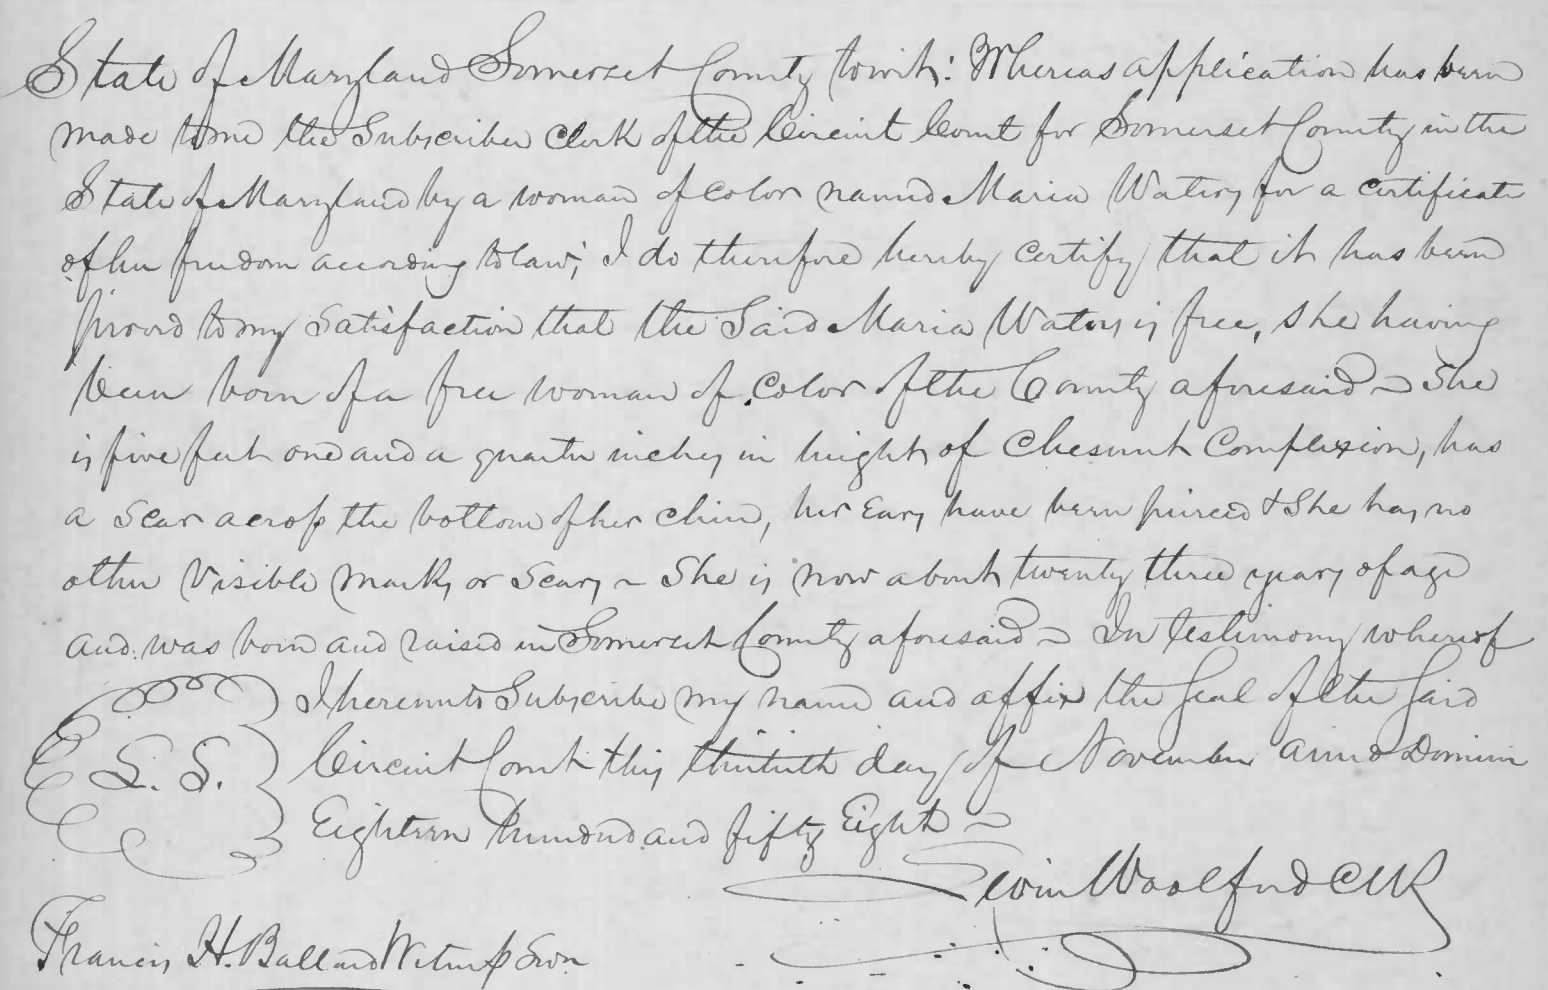 State of Maryland Somerset County towit: Whereas application has been
made to me the Subscriber Clerk of the Circuit Court for Somerset County in the
State of Maryland by a woman of color named Maria Waters for a certificate
of her freedom according to law; I do therefore hereby certify that it has been
proved to my Satisfaction that the Said Maria Waters is free, she having
been born of a free woman of color of the County aforesaid ~ She
is five feet one and a quarter inches in height, of Chesnut Complexion, has
a Scar across the bottom of her chin, her Ears have been pierced & She has no
other Visible marks or Scars ~ She is now about twenty three years of age
and was born and raised in Somerset County aforesaid ~ In testimony whereof
I hereunto Subscribe my name and affix the Seal of the Said
L. S. Circuit Court this thirtieth day of November Anno Domini
Eighteen hundred and fifty Eight ~
Levin Woolford Clk
Francis H. Ballard Witness Swn